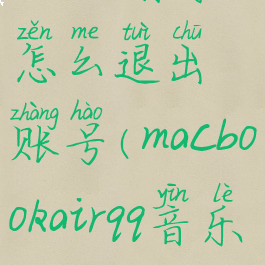 zěn me tuì chū
怎么退出
zhàng hào
账号(macbo
yīn lè
okairqq音乐